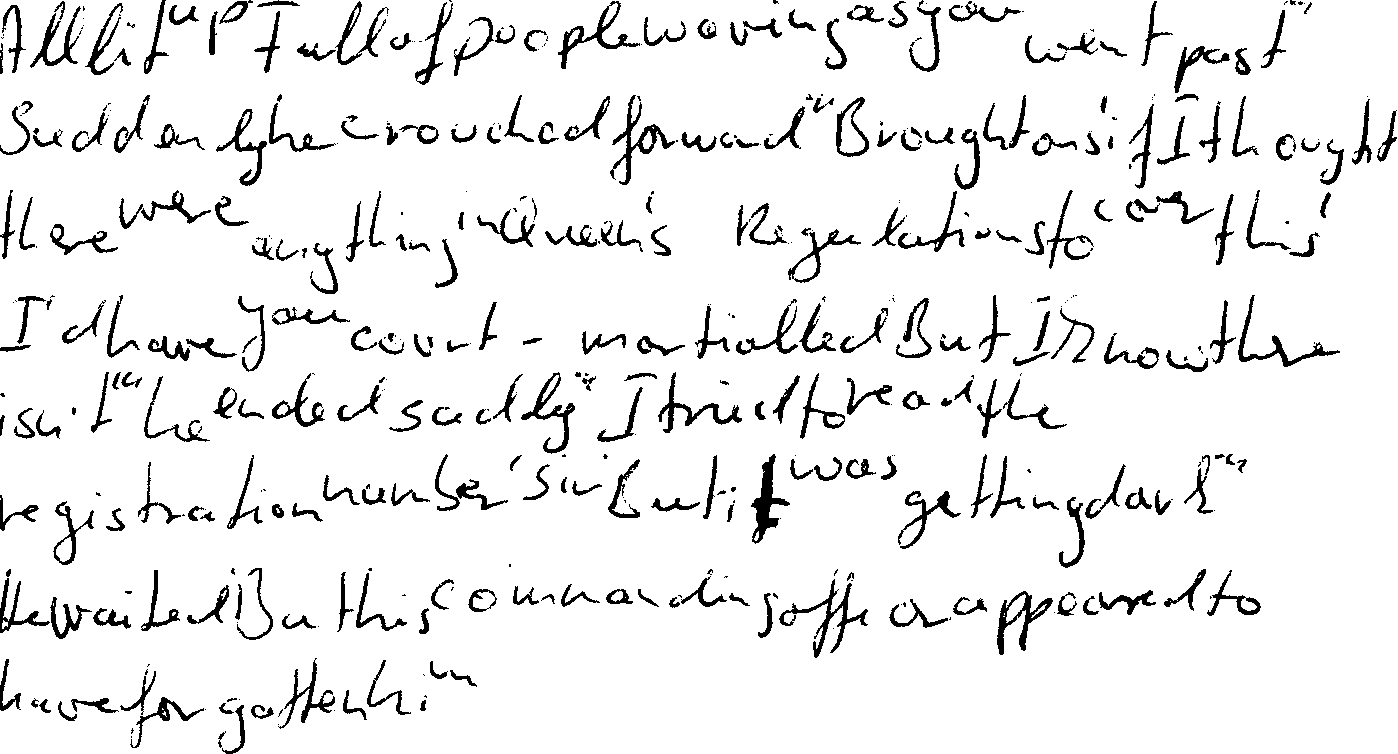 All lit up Full of people waving as you went past"
Suddenly he crouched forward "Broughton, if I thought
there were anything in Queen's Regulations to cover this,
I'd have you court-martialled But I know there
isn't" he ended sadly "I tried to read the
registration number, sir But it was getting dark"
He waited But his commanding officer appeared to
have forgotten him